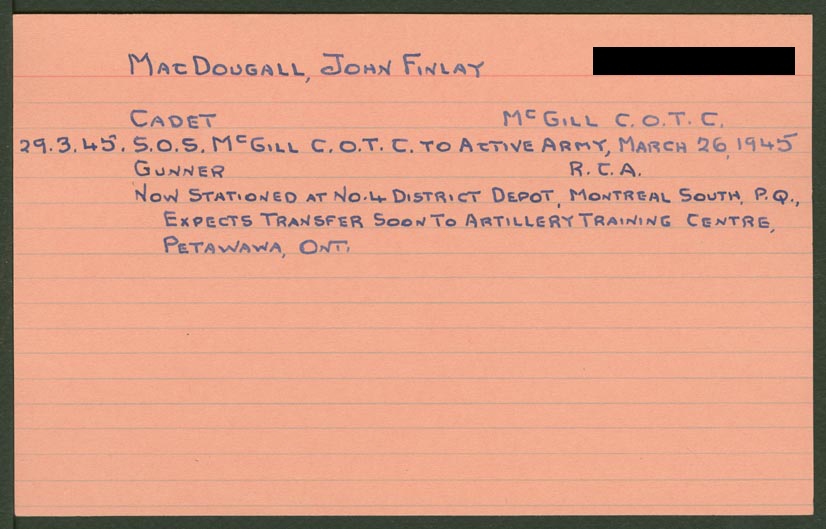 MacDougall, John Finlay
Cadet McGill C.O.T.C.
29.3.45. S.O.S. McGill C.O.T.C. to Active Army, March 26, 1945
Gunner R.C.A.
Now Stationed at No.4 District Depot, Montreal South, P.Q.,
Expects Transfer Soon To Artillery Training Centre,
Petawawa, Ont.